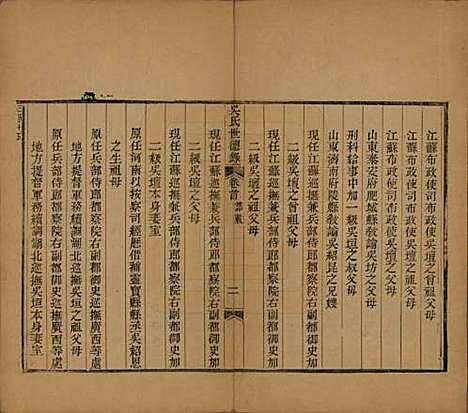 江蘇布政使司布政使吳壇之曾祖父母
江蘇布政使司布政使吳壇之祖父母
山東泰安府肥城縣教諭吳坊之父母
刑科給事中加一級吳垣之叔父母
山東濟南府教諭吳紹昆之兄嫂
現任江蘇巡撫兼兵部侍郎都察院右副都御史加
二級吳壇之曾祖父母
現任江蘇巡撫兼兵部侍郎都察院右副都御史加
二級吳壇之祖父母
吳氏世德錄 卷首 二
現任江蘇巡撫兼兵部侍郎都察院右副都御史加
二級吳壇本身妻室
原任河南以按察司經歷借補靈寶縣縣丞吳紹恩
之生祖母
原任兵部侍郎都察院右副都御史巡撫廣西等處
地方提督軍務續調湖北巡撫吳垣之祖父母
原任兵部侍郎都察院右副都御史巡撫廣西等處
地方提督軍務續調湖北巡撫吳垣本身妻室